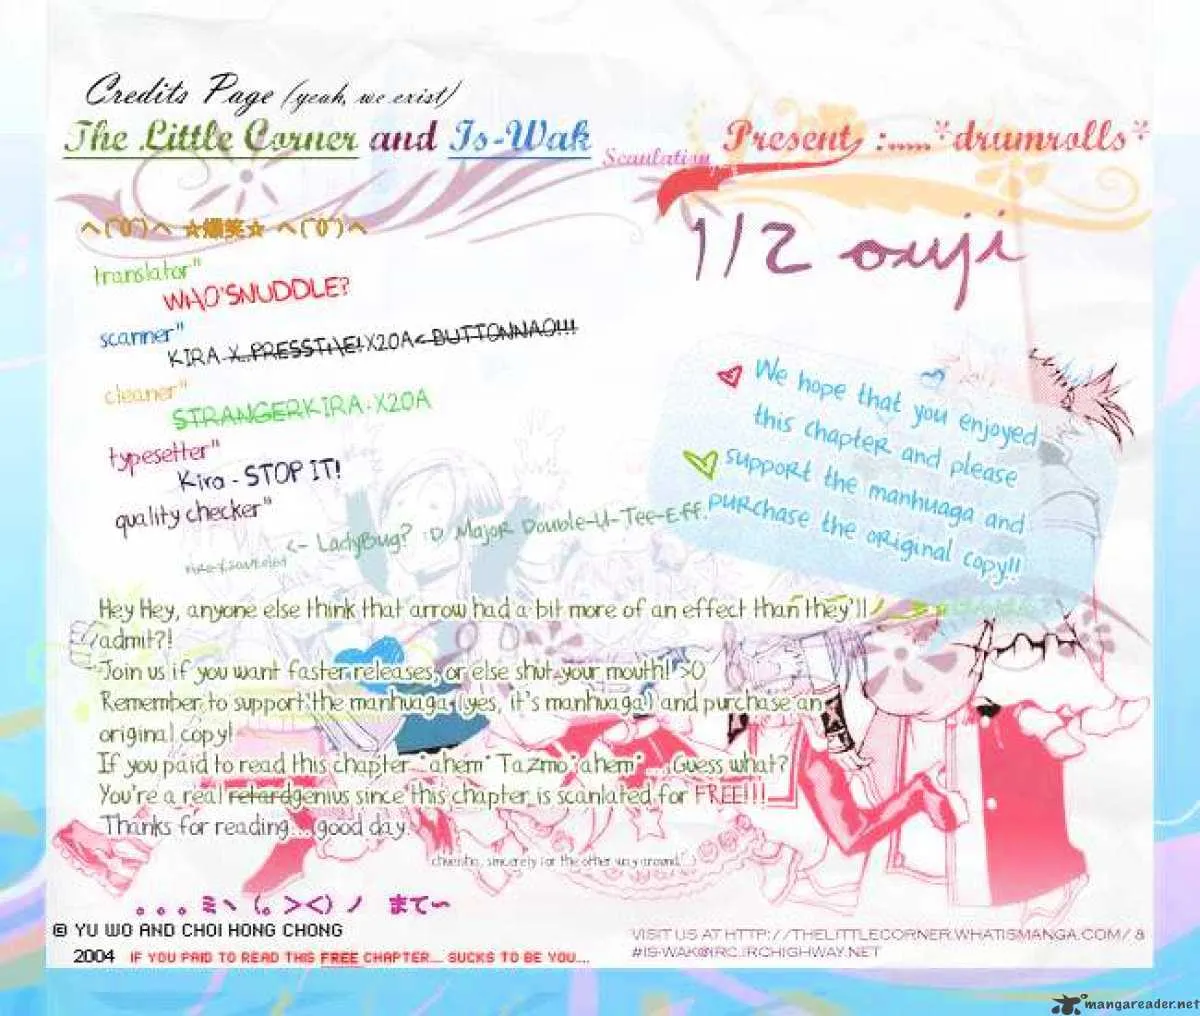 Credits Page (yeah, we exist)
The Little Corner and Is-Wak Scanlation Present :.....*drumrolls*
1/2 ouji
ヘ(^0^)ヘ ☆爆笑☆ ヘ(^0^)ヘ
translator"
WHO'SNUDDLE?
scanner"
KIRA X PRESSTHE! X20A < BUTTONNAO!!!
cleaner"
STRANGERKIRA-X20A
typesetter"
Kira - STOP IT!
quality checker"
<- LadyBug? :D Major Double-U-Tee-Eff.
We hope that you enjoyed
this chapter and please
support the manhuaga and
purchase the original copy!!
Hey Hey, anyone else think that arrow had a bit more of an effect than they'll
admit?!
Join us if you want faster releases, or else shut your mouth! >O
Remember to support the manhuaga (yes, it's manhuaga) and purchase an
original copy!
If you paid to read this chapter *ahem* Tazmo *ahem* ... Guess what?
You're a real retardgenius since this chapter is scanlated for FREE!!!
Thanks for reading... good day.
sincerely (or the other way around...)
。。。ミヽ（。＞＜）ノ まて～
© YU WO AND CHOI HONG CHONG
2004 IF YOU PAID TO READ THIS FREE CHAPTER... SUCKS TO BE YOU...
VISIT US AT HTTP://THELITTLECORNER.WHATISMANGA.COM/ &
#IS-WAK@IRC.IRCHIGHWAY.NET
mangareader.net